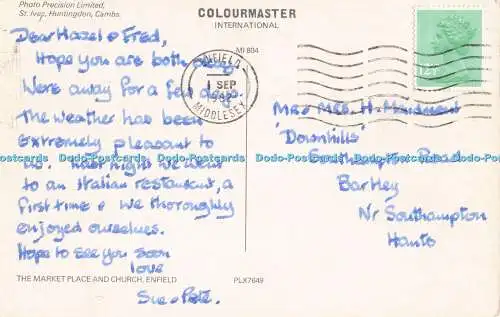 Photo Precision Limited,
St. Ives, Huntingdon, Cambs.
COLOURMASTER
INTERNATIONAL
MI 804
Dear Hazel & Fred,
Hope you are both okay
Were away for a few days.
The weather has been
Extremely pleasant to
us. Last night we went
to an Italian restaurant, a
first time & we thoroughly
enjoyed ourselves.
Hope to see you soon
love
Sue & Pete.
ENFIELD
1 SEP
MIDDLESEX
12½P
Mr & Mrs. H.
'Downhills'
Southampton Road
Bartley
Nr Southampton
Hants
Dodo-Postcards Dodo-Postcards Dodo-Postcards Dodo-Postcards Dodo-Postcards
THE MARKET PLACE AND CHURCH, ENFIELD
PLX7649